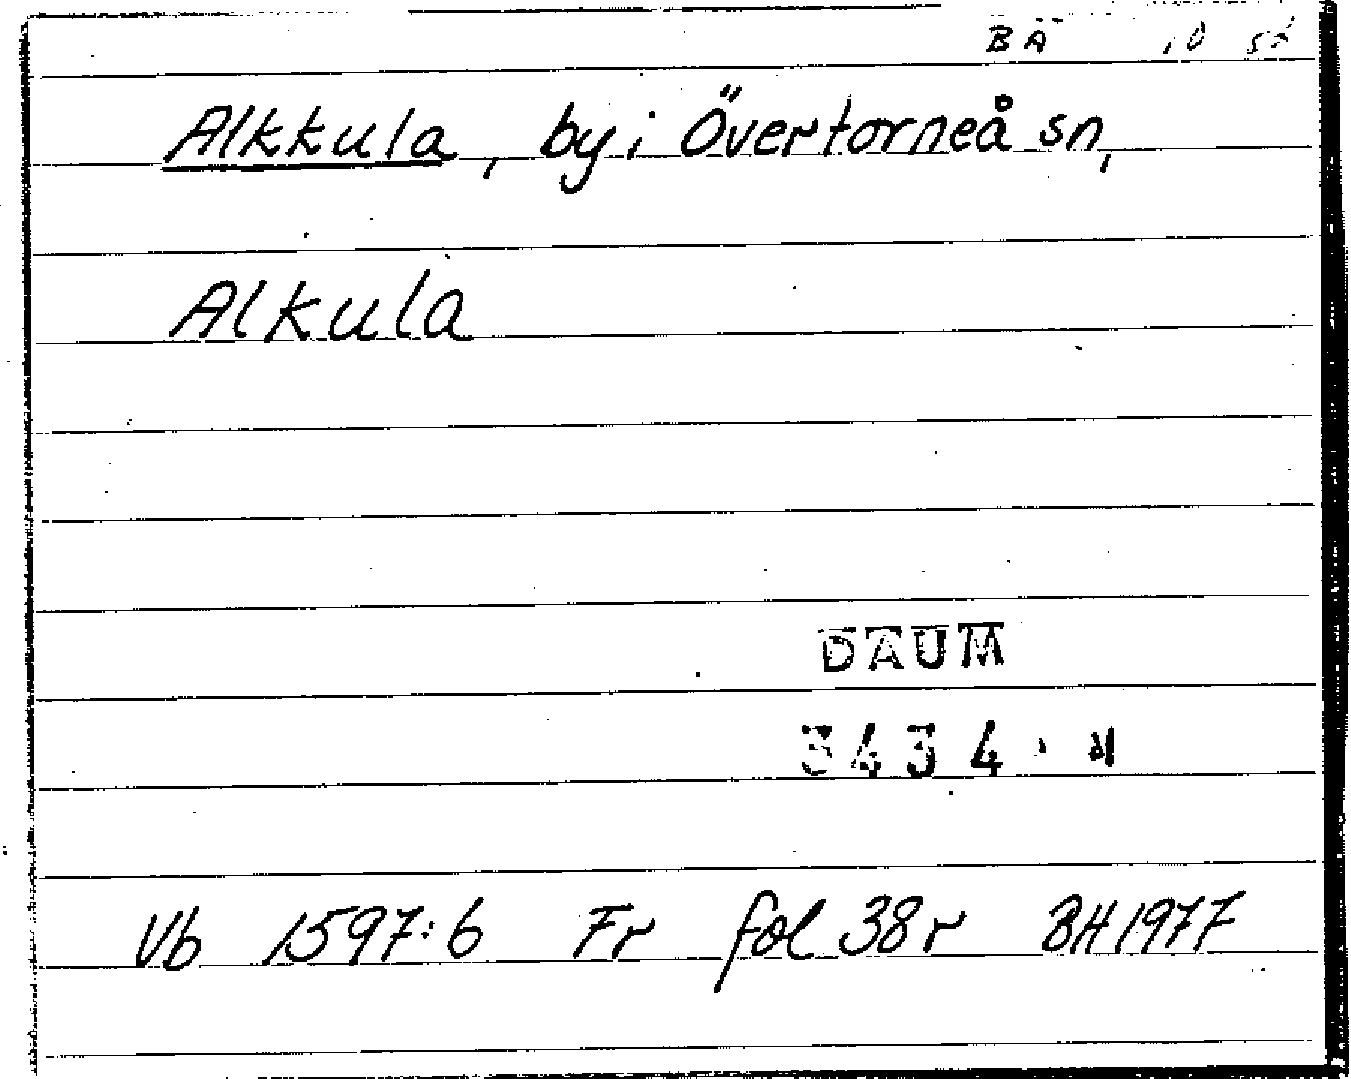 BÄ
Alkkula, by i Övertorneå sn,
Alkula
DAUM
3434
Vb 1597:6 Fr fol 38 r BH 1977